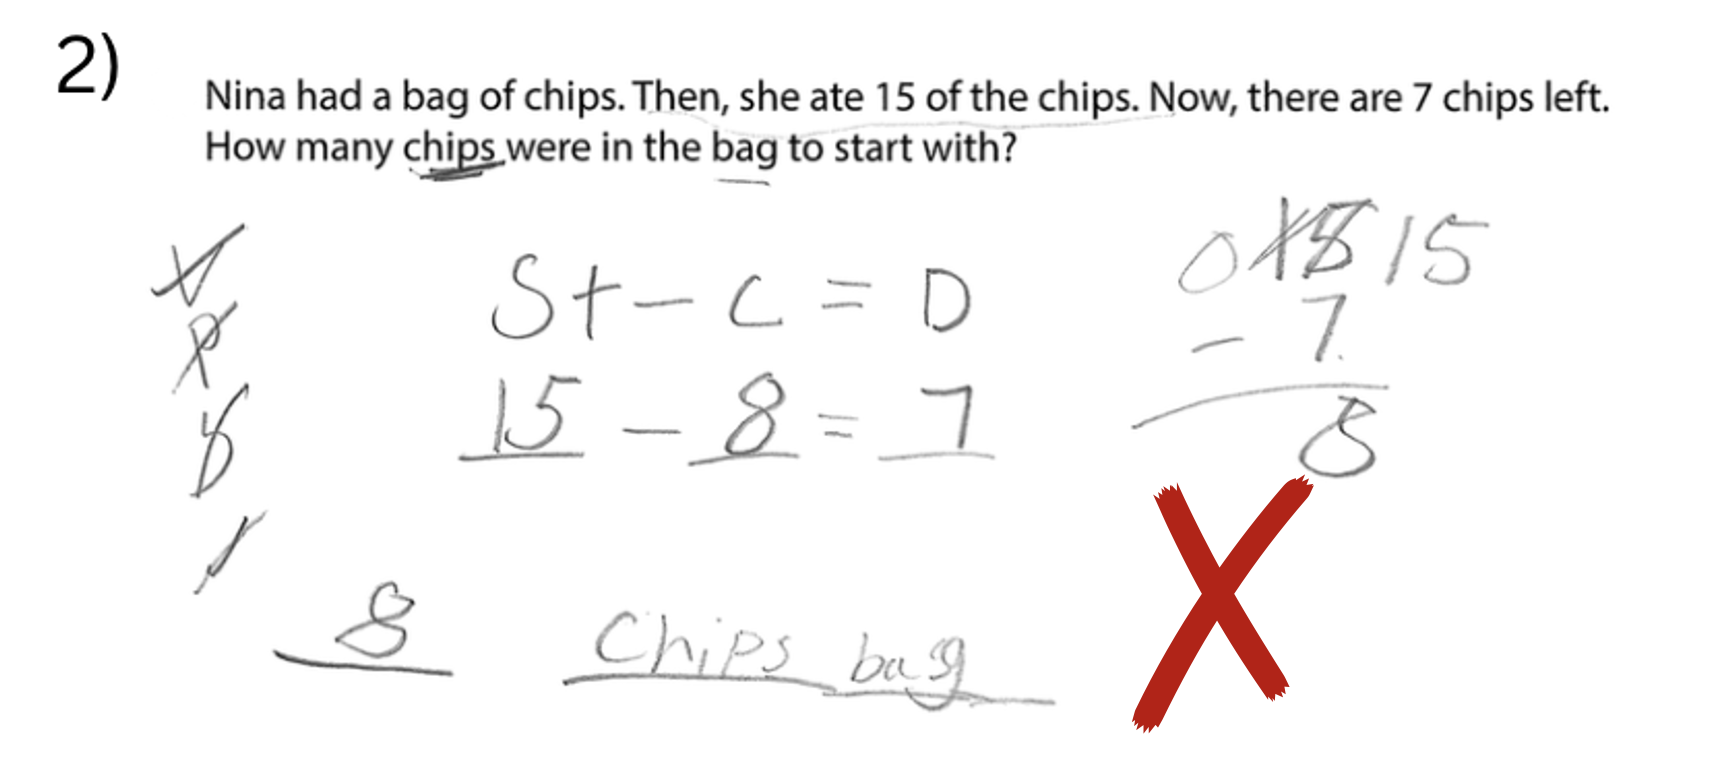 2)
Nina had a bag of chips. Then, she ate 15 of the chips. Now, there are 7 chips left.
How many chips were in the bag to start with?
St - C = D
15 - 8 = 7
0 15 15
- 7
8
8 Chips bag